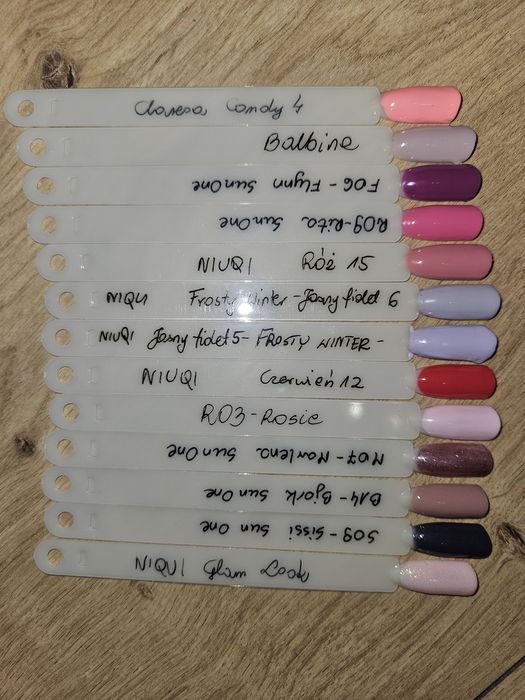 Claresa Candy 4
Balbina
F06 - Flynn SunOne
R09-Rita SunOne
NIUQI Róż 15
NIQU Frosty Winter - Jasny fiolet 6
NIUQI Jasny fiolet 5 - FROSTY WINTER -
NIUQI Czerwień 12
R03 - Rosie
M07 - Marlena SunOne
B14 - Bjork SunOne
S09 - Sissi Sun One
NIQUI Glam Look